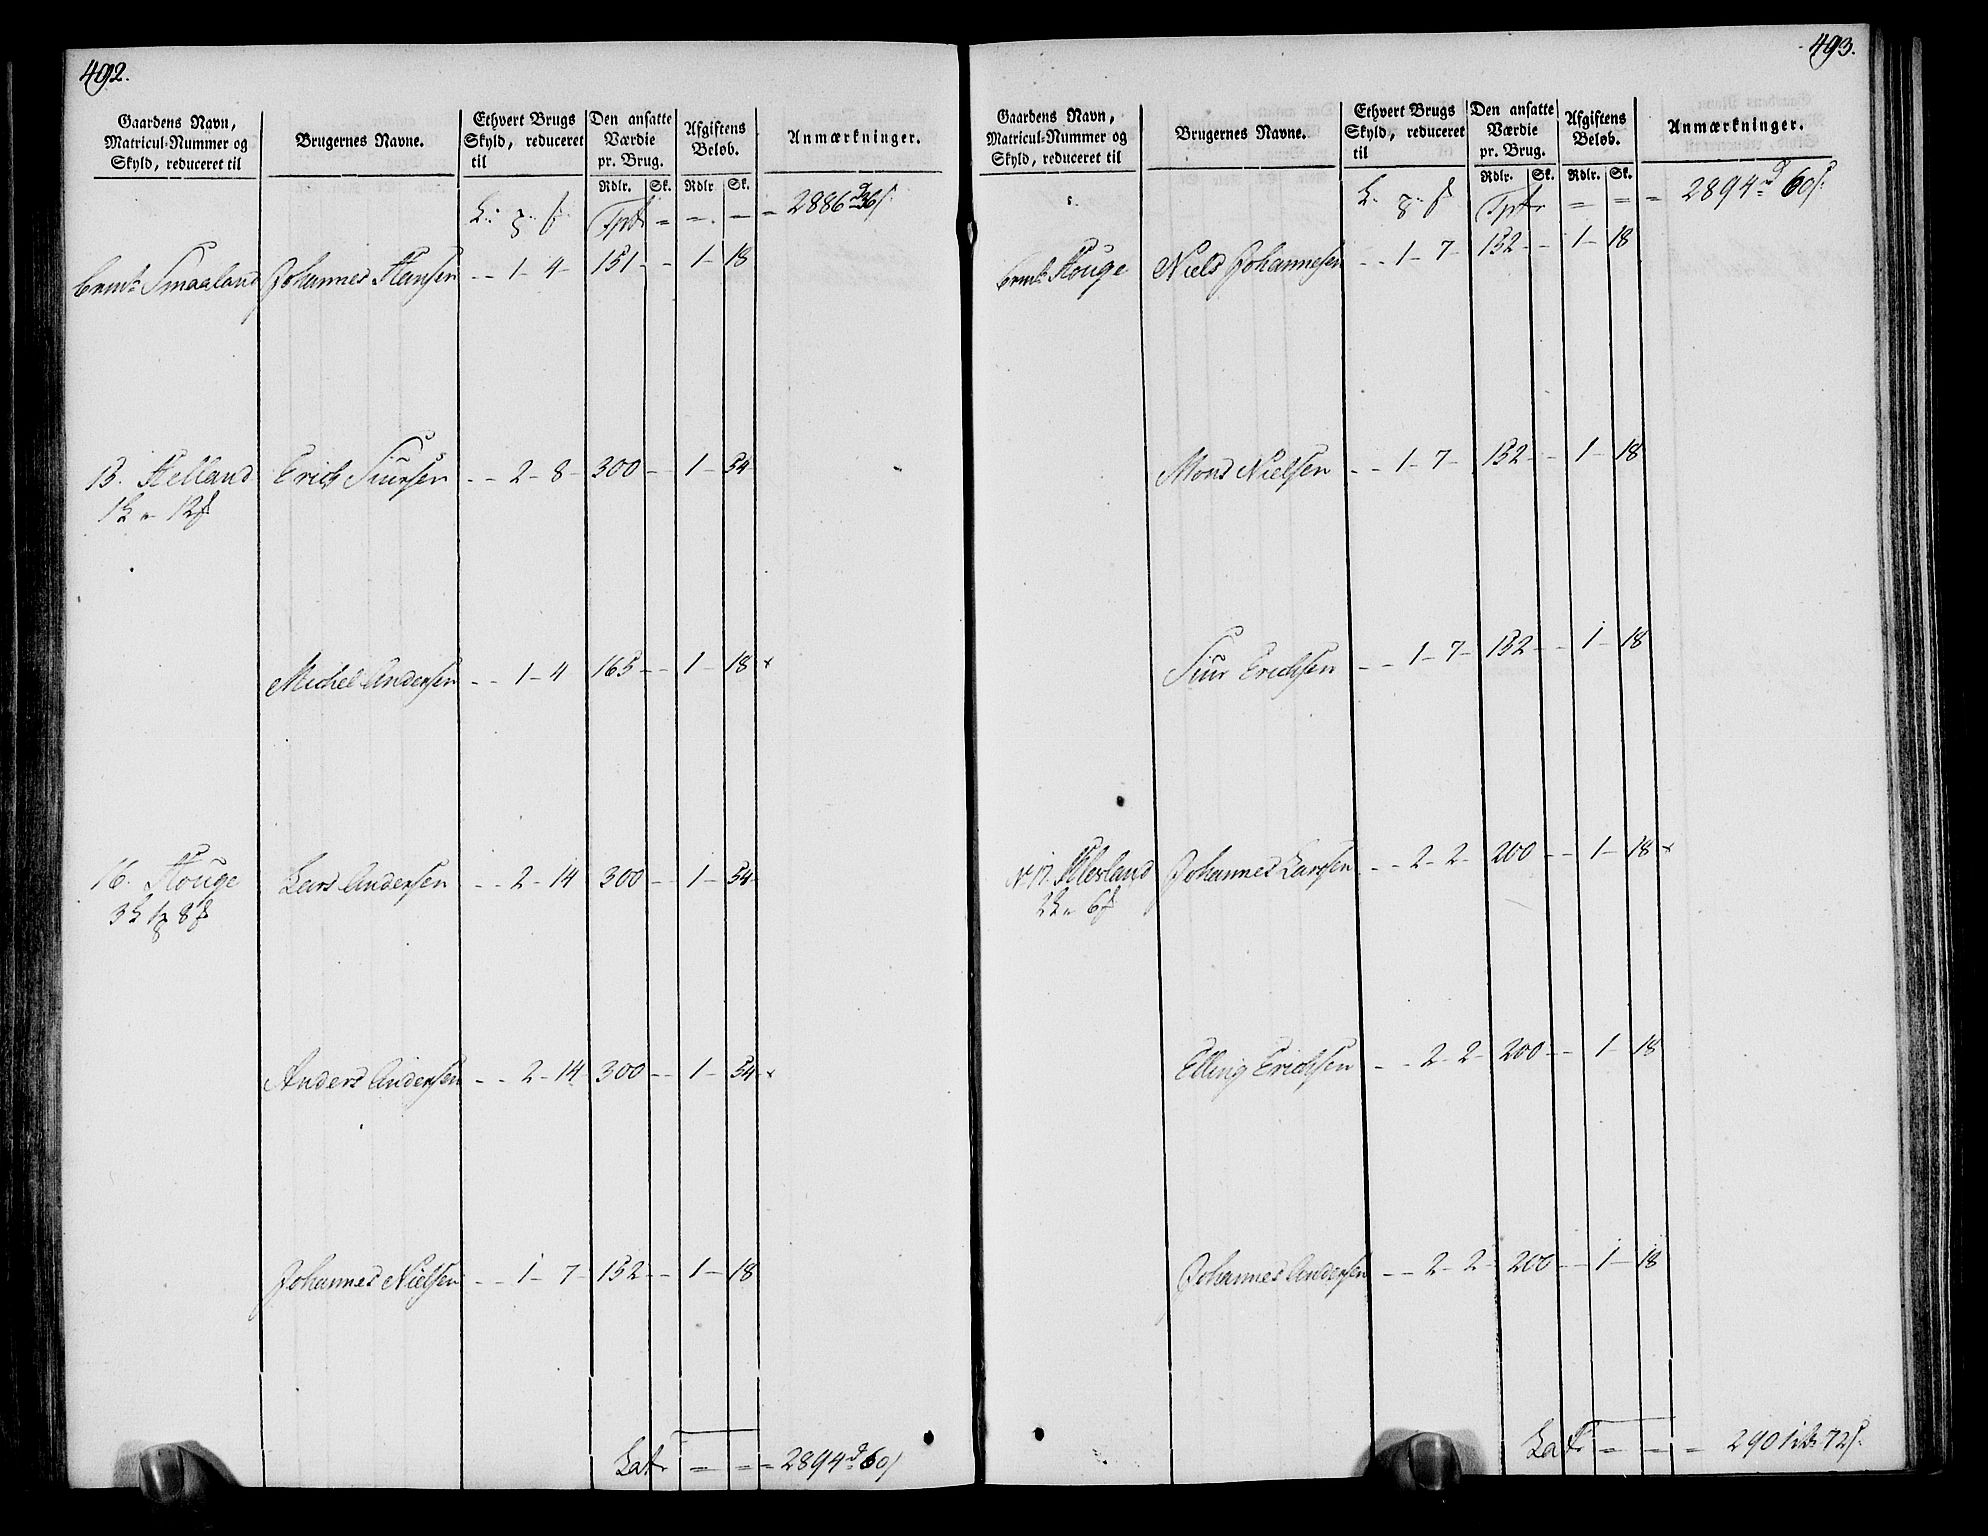 492.
Gaardens Navn, Matricul-Nummer og Skyld, reduceret til
Brugernes Navne.
Ethvert Brugs Skyld, reduceret til
Den ansatte Værdie pr. Brug.
Afgiftens Beløb.
Anmærkninger.
Rdlr. Sk. Rdlr. Sk.
Tptr = = . — = 2886 36
Smaaland Johannes Hansen - - 1 - 4 - 151 - - 1 - 18
15. Helland Erick Siursen - - 2 - 8 - 300 - - 1 - 54
12
Michel Andersen - - 1 - 4 165 - - 1 - 18 x
16. Houge Lars Andersen - - 2 - 14 300 - - 1 - 54
3 1 8
Anders Andersen - - 2 - 14 300 - - 1 - 54 x
Johannes Nielsen - - 1 - 7 - 152 - - 1 - 18
Latr = = = 2894 60
493.
Gaardens Navn, Matricul-Nummer og Skyld, reduceret til
Brugernes Navne.
Ethvert Brugs Skyld, reduceret til
Den ansatte Værdie pr. Brug.
Afgiftens Beløb.
Anmærkninger.
Rdlr. Sk. Rdlr. Sk.
Tptr = = = 2894 60
Houge Niels Johannesen - - 1 - 7 - 152 - - 1 - 18
Mons Nielsen - - 1 - 7 - 152 - - 1 - 18
Siur Erichsen - - 1 - 7 - 152 - - 1 - 18
No 17. Johannes Larsen - - 2 - 2 - 200 - - 1 - 18 x
6
Elling Erichsen - - 2 - 2 - 200 - - 1 - 18
Johannes Andersen - - 2 - 2 - 200 - - 1 - 18
Latr = = = 2901 72